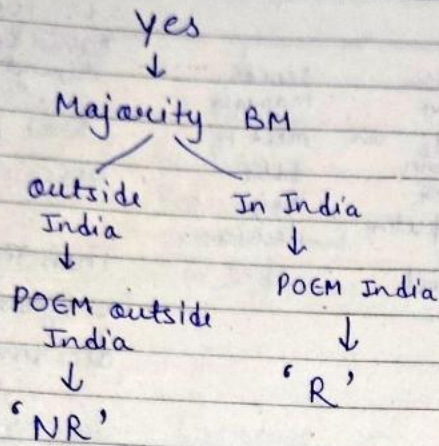 Yes
↓
Majority BM
outside India
In India
↓
↓
POEM outside India
POEM India
↓
↓
'NR'
'R'